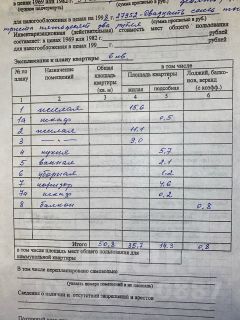 в ценах 1969 или 1982 г.
(сумма прописью в руб.)
для налогообложения в ценах на 1998 г. 27852 - двадцать семь
восемьсот пятьдесят два рубля
(сумма прописью в руб.)
Инвентаризационная (действительная) стоимость мест общего пользования
составляет: в ценах 1969 или 1982 г. рублей
для налогообложения в ценах 199 г. рублей
Экспликация к плану квартиры
№ по плану
Назначение помещений
Общая площадь квартиры (кв. м)
в том числе
Площадь квартиры
жилая
подсобная
Лоджий, балконов, веранд (с коэфф.)
1 2 3 4 5 6
1 жилая 15,6
1а шкаф 0,5
2 жилая 11,1
3 -"- 9,0
4 кухня 5,7
5 ванная 2,1
6 уборная 1,2
7 коридор 4,6
7а шкаф 0,2
8 балкон 0,8
Итого 50,8 35,7 14,3 0,8
в том числе площадь мест общего пользования для
коммунальной квартиры
В том числе перепланировано самовольно
(указать номера помещений и их площадь)
Сведения о наличии и отсутствии запрещений и арестов